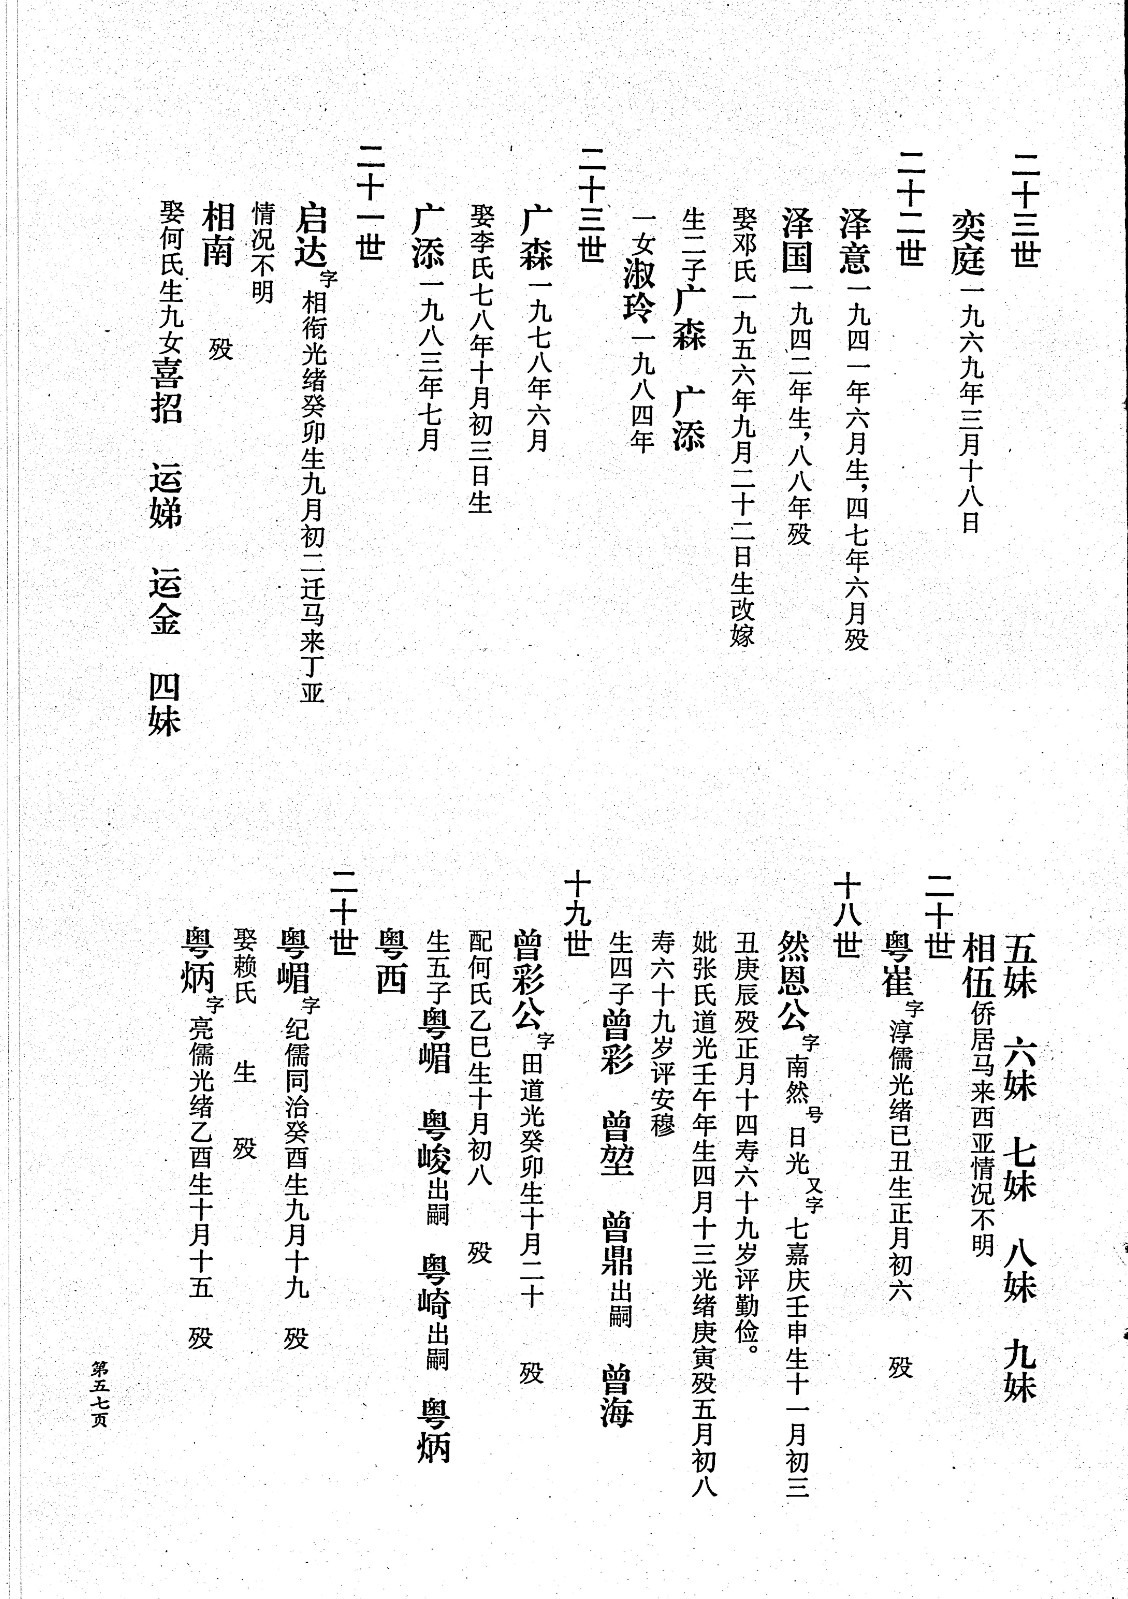 二十三世
奕庭一九六九年三月十八日
二十二世
泽意一九四一年六月生，四七年六月殁
泽国一九四二年生，八八年殁
娶邓氏一九五六年九月二十二日生改嫁
生二子广森 广添
一女淑玲一九八四年
二十三世
广森一九七八年六月
娶李氏七八年十月初三日生
广添一九八三年七月
二十一世
启达字相衔光绪癸卯生九月初二迁马来丁亚
情况不明
相南 殁
娶何氏生九女喜招 运娣 运金 四妹
五妹 六妹 七妹 八妹 九妹
相伍侨居马来西亚情况不明
二十世
粤崔字淳儒光绪已丑生正月初六 殁
十八世
然恩公字南然号日光又字七嘉庆壬申生十一月初三
丑庚辰殁正月十四寿六十九岁评勤俭。
妣张氏道光壬午年生四月十三光绪庚寅殁五月初八
寿六十九岁评安穆
生四子曾彩 曾堃 曾鼎出嗣 曾海
十九世
曾彩公字田道光癸卯生十月二十 殁
配何氏乙巳生十月初八 殁
生五子粤嵋 粤峻出嗣 粤崎出嗣 粤炳
粤西
二十世
粤嵋字纪儒同治癸酉生九月十九 殁
娶赖氏 生 殁
粤炳字亮儒光绪乙酉生十月十五 殁
第五七页